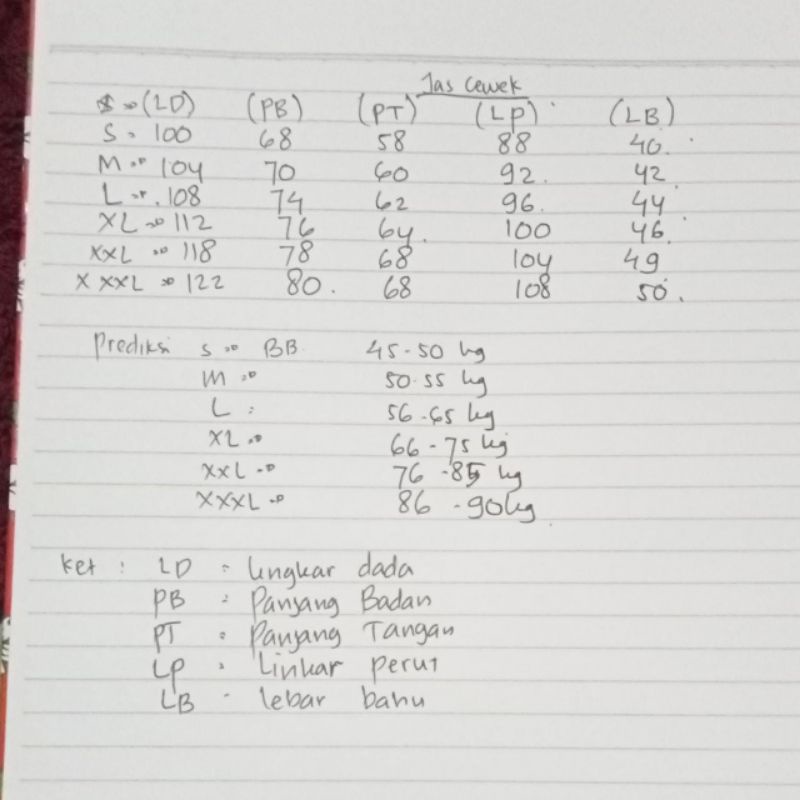 Jas Cewek
(LD) (PB) (PT) (LP) (LB)
S = 100 68 58 88 40.
M => 104 70 60 92. 42
L => 108 74 62 96. 44
XL => 112 76 64. 100 46.
XXL => 118 78 68 104 49
XXXL => 122 80. 68 108 50.
Prediksi S => BB 45-50 kg
M => 50-55 kg
L : 56-65 kg
XL => 66-75 kg
XXL => 76-85 kg
XXXL => 86-90 kg
Ket : LD = Lingkar dada
PB : Panjang Badan
PT : Panjang Tangan
LP : Linkar perut
LB - lebar bahu